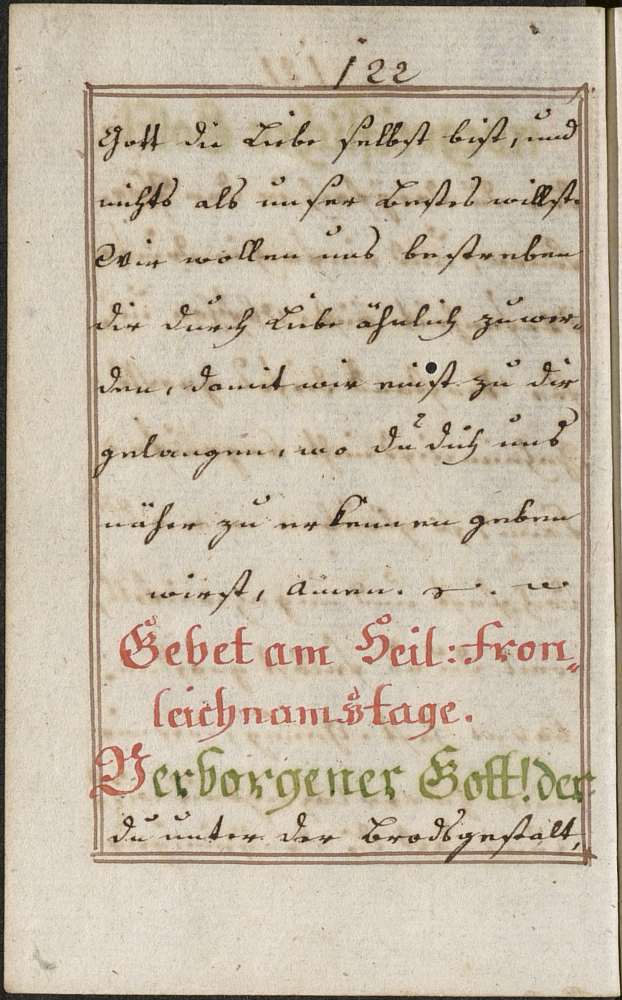 122
Gott die Liebe selbst bist, und
nichts als unser Bestes willst.
Wir wollen uns bestreben
dir durch Liebe ähnlich zu wer¬
den, damit wir einst zu dir
gelangen, wo du dich uns
näher zu erkennen geben
wirst, Amen.
Gebet am Heil: Fron¬
leichnamstage.
Verborgener Gott! der
du unter der Brodsgestalt,